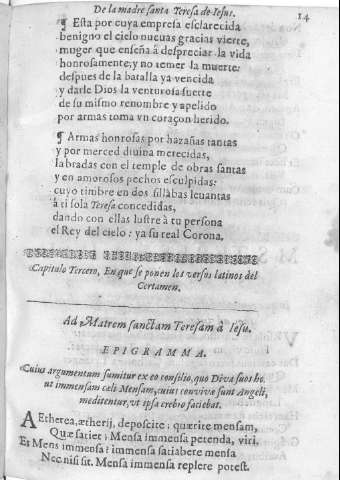 De la madre santa Teresa de Iesus. 14
¶ Esta por cuya empresa esclarecida
benigno el cielo nueuas gracias vierte,
muger que enseña â despreciar la vida
honrosamente; y no temer la muerte:
despues de la batalla ya vencida
y darle Dios la venturosa suerte
de su mismo renombre y apelido
por armas toma vn coraçon herido.
¶ Armas honrosas por hazañas tantas
y por merced diuina merecidas,
labradas con el temple de obras santas
y en amorosos pechos esculpidas:
cuyo timbre en dos sillabas leuantas
â ti sola Teresa concedidas,
dando con ellas lustre â tu persona
el Rey del cielo: ya su real Corona.
Capitulo Tercero, En que se ponen los versos latinos del
Certamen.
Ad Matrem sanctam Teresam à Iesu.
EPIGRAMMA.
Cuius argumentum sumitur ex eo consilio, quo Diua suos hor
ut immensam cæli Mensam, cuius conviuæ sunt Angeli,
meditentur, vt ipsa crebro faciebat.
AEtherea, ætherij, deposcite; quærire mensam,
Quæ satiet; Mensa immensa petenda, viri.
Et Mens immensa? immensa satiabere mensa
Nec nisi sit. Mensa immensa replere potest.